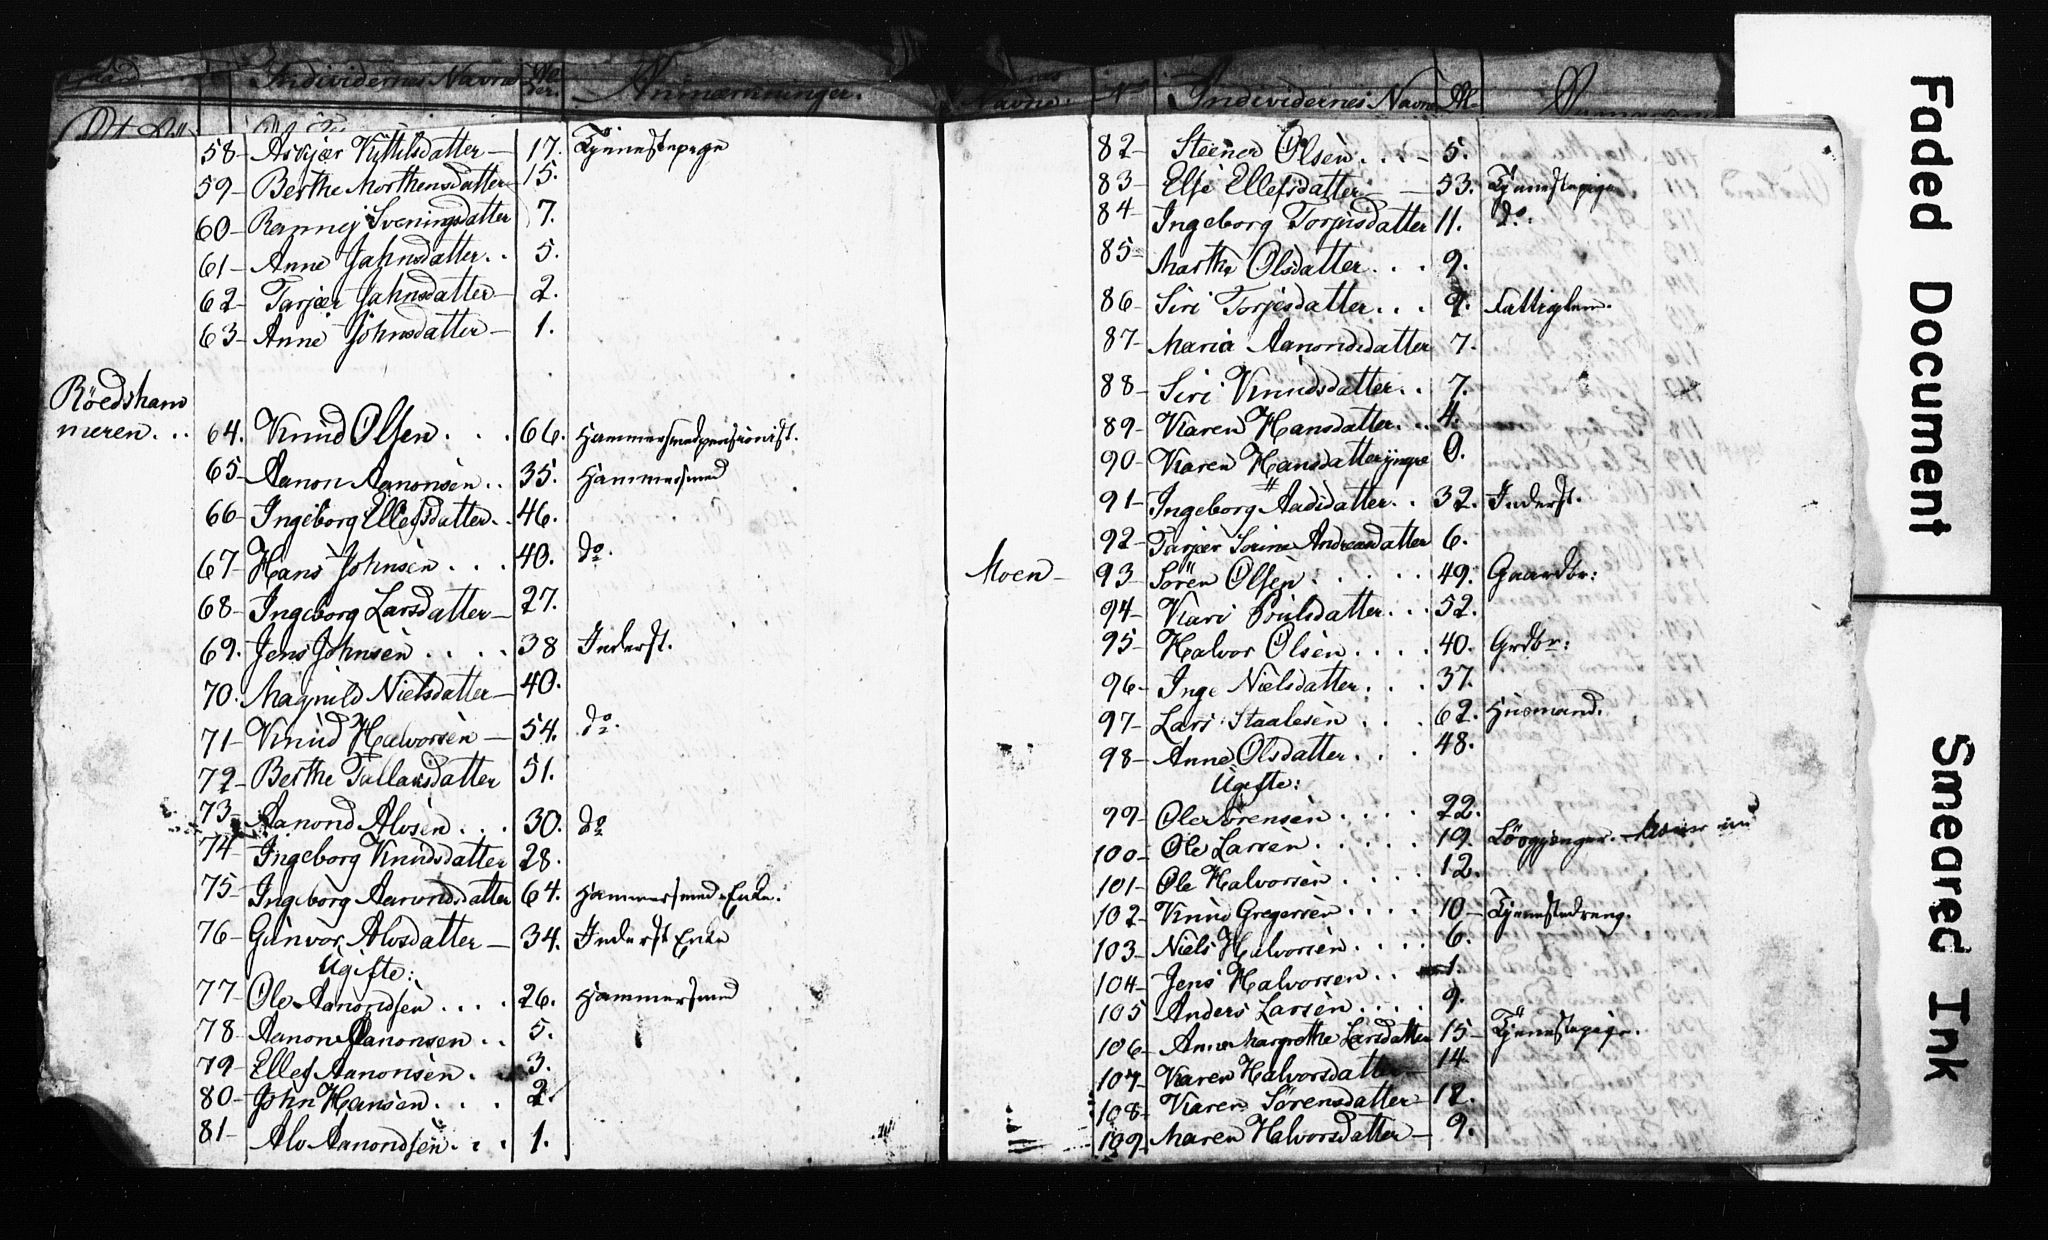 Individernes Navne Al- der. Anmærkninger.
58 - Askjær Kittilsdatter - 17. Tjenestepige
59 - Berthe Morthensdatter - 15.
60 - Rannej Sveningsdatter 7.
61 - Anne Jahnsdatter . . 5.
62 - Tarjær Jahnsdatter - 2.
63 - Anne Johnsdatter - 1.
Röedsham
meren . . . 64. Knud Olsen . . . 66. Hammersmedpensionist.
65 - Aanon Aanonsen . . 35. Hammersmed
66 - Ingeborg Ellefsdatter . . 46.
67 - Hans Johnsen . . . 40. do.
68 - Ingeborg Larsdatter - 27.
69. Jens Johnsen . . . . 38 Inderst.
70. Magnild Nielsdatter - 40.
71 - Knud Halvorsen - 54. do.
72 - Berthe Tallaksdatter 51.
73 - Aanond Alvsen . . . 30. do
74 - Ingeborg Knudsdatter 28.
75 - Ingeborg Aanondsdatter 64. Hammersmed-Enke.
76 - Gunvor Alvsdatter - 34. Inderst Enke
Ugifte:
77 - Ole Aanondsen . . . . 26. Hammersmed
78 - Aanon Aanonsen . . 5.
79 - Ellef Aanonsen . 3.
80 - John Hansen . . . . 2.
81 - Alv Aanondsen . . . 1.
Navne. No Individernes Navne Al-
82 - Steener Olsen . . . - 5.
83 - Else Ellefsdatter - - 53. Tjenestepige
84 - Ingeborg Torjusdatter 11. do.
85 - Marthe Olsdatter . . . 9.
86 - Siri Torjesdatter . . . 9. Fattiglem.
87 - Maria Aanondsdatter 7.
88 - Siri Knudsdatter . . 7.
89 - Karen Hansdatter . . . 4.
90 - Karen Hansdatter yngre 0.
91 - Ingeborg Aadsdatter . . 32. Inderst.
92 - Tarjær Sorine Andreasdatter 6.
Moen - 93 - Sören Olsen . . . . . 49. Gaardbr:
94 - Kari Poulsdatter . . . 52.
95 - Halvor Olsen . . . . 40. Grdbr:
96 - Inge Nielsdatter . . . 37.
97 - Lars Staalesen . . . 62. Huusmand.
98 - Anne Olsdatter . . . 48.
Ugifte:
99 - Ole Sörensen . . . . 22.
100 - Ole Larsen . . . . . 19.
101 - Ole Halvorsen . . . . 12.
102 - Knud Gregersen . . . . 10 - Tjenestedreng.
103 - Niels Halvorsen . . . . 6.
104 - Jens Halvorsen . . 1.
105 Anders Larsen . . . . 9.
106 - Anne Margrethe Larsdatter 15 - Tjenestepige.
107 - Karen Halvorsdatter - 14
108 - Karen Sörensdatter - 12.
109 - Maren Halvorsdatter - 9.
Faded Document
Smeared Ink